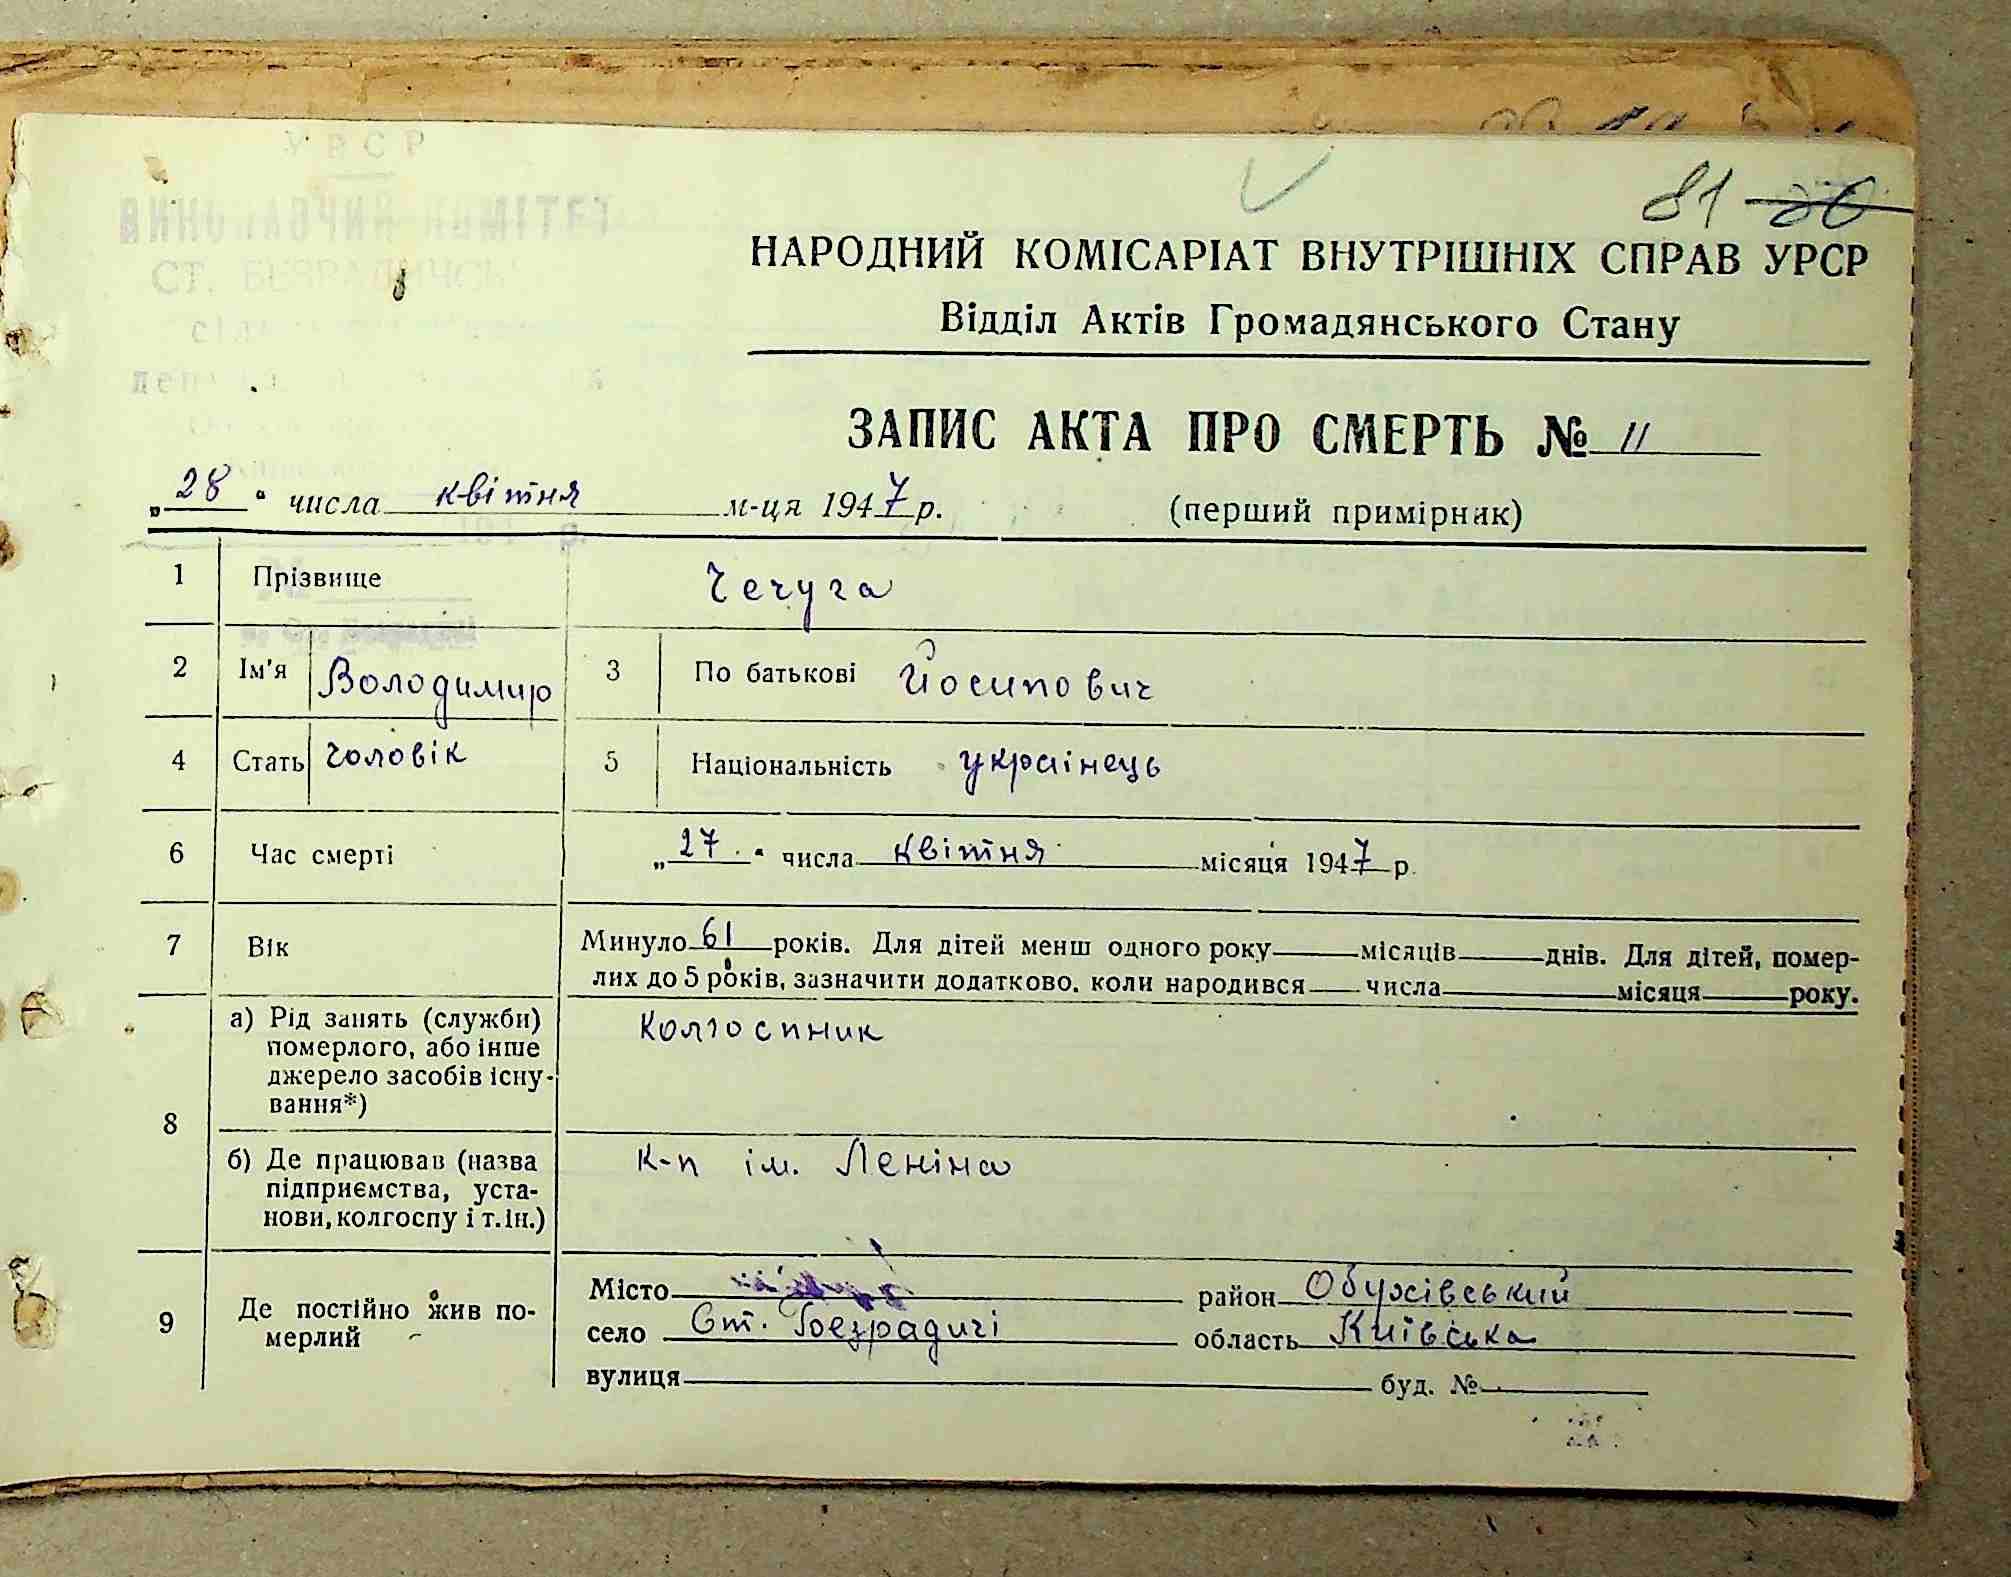 УРСР
СТ. БЕЗРАДИЧСЬ
81 80
НАРОДНИЙ КОМІСАРІАТ ВНУТРІШНІХ СПРАВ УРСР
Відділ Актів Громадянського Стану
ЗАПИС АКТА ПРО СМЕРТЬ № 11
„28" числа квітня м-ця 1947 р. (перший примірник)
1 Прізвище Чечуга
2 Ім'я Володимир 3 По батькові Йосипович
4 Стать чоловік 5 Національність украінець
6 Час смерті „27" числа квітня місяця 1947 р.
7 Вік Минуло 61 років. Для дітей менш одного року місяців днів. Для дітей, помер-
лих до 5 років, зазначити додатково, коли народився числа місяця року.
8 а) Рід занять (служби) Колгоспник
померлого, або інше
джерело засобів існу-
вання*)
б) Де працював (назва К-п ім. Леніна
підприємства, уста-
нови, колгоспу і т. ін.)
9 Де постійно жив по-
мерлий
Місто район Обухівський
село Ст. Безрадичі область Київська
вулиця буд. №